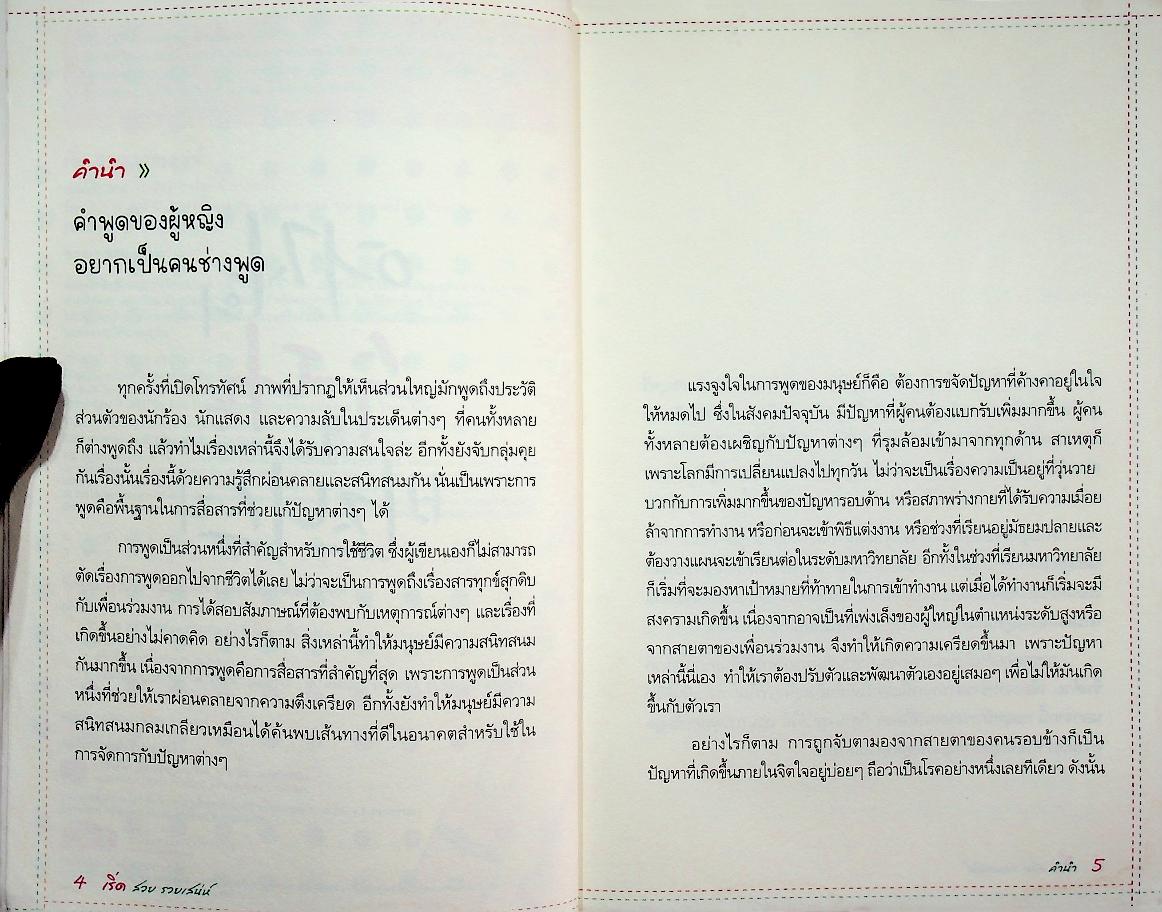 คำนำ »
คำพูดของผู้หญิง
อยากเป็นคนช่างพูด
ทุกครั้งที่เปิดโทรทัศน์ ภาพที่ปรากฏให้เห็นส่วนใหญ่มักพูดถึงประวัติ
ส่วนตัวของนักร้อง นักแสดง และความลับในประเด็นต่างๆ ที่คนทั้งหลาย
ก็ต่างพูดถึง แล้วทำไมเรื่องเหล่านี้จึงได้รับความสนใจล่ะ อีกทั้งยังจับกลุ่มคุย
กันเรื่องนั้นเรื่องนี้ด้วยความรู้สึกผ่อนคลายและสนิทสนมกัน นั่นเป็นเพราะการ
พูดคือพื้นฐานในการสื่อสารที่ช่วยแก้ปัญหาต่างๆ ได้
การพูดเป็นส่วนหนึ่งที่สำคัญสำหรับการใช้ชีวิต ซึ่งผู้เขียนเองก็ไม่สามารถ
ตัดเรื่องการพูดออกไปจากชีวิตได้เลย ไม่ว่าจะเป็นการพูดถึงเรื่องสารทุกข์สุกดิบ
กับเพื่อนร่วมงาน การได้สอบสัมภาษณ์ที่ต้องพบกับเหตุการณ์ต่างๆ และเรื่องที่
เกิดขึ้นอย่างไม่คาดคิด อย่างไรก็ตาม สิ่งเหล่านี้ทำให้มนุษย์มีความสนิทสนม
กันมากขึ้น เนื่องจากการพูดคือการสื่อสารที่สำคัญที่สุด เพราะการพูดเป็นส่วน
หนึ่งที่ช่วยให้เราผ่อนคลายจากความตึงเครียด อีกทั้งยังทำให้มนุษย์มีความ
สนิทสนมกลมเกลียวเหมือนได้ค้นพบเส้นทางที่ดีในอนาคตสำหรับใช้ใน
การจัดการกับปัญหาต่างๆ
4 เริ่ด สวย รวยเสน่ห์
แรงจูงใจในการพูดของมนุษย์ก็คือ ต้องการขจัดปัญหาที่ค้างคาอยู่ในใจ
ให้หมดไป ซึ่งในสังคมปัจจุบัน มีปัญหาที่ผู้คนต้องแบกรับเพิ่มมากขึ้น ผู้คน
ทั้งหลายต้องเผชิญกับปัญหาต่างๆ ที่รุมล้อมเข้ามาจากทุกด้าน สาเหตุก็
เพราะโลกมีการเปลี่ยนแปลงไปทุกวัน ไม่ว่าจะเป็นเรื่องความเป็นอยู่ที่วุ่นวาย
บวกกับการเพิ่มมากขึ้นของปัญหารอบด้าน หรือสภาพร่างกายที่ได้รับความเมื่อย
ล้าจากการทำงาน หรือก่อนจะเข้าพิธีแต่งงาน หรือช่วงที่เรียนอยู่มัธยมปลายและ
ต้องวางแผนจะเข้าเรียนต่อในระดับมหาวิทยาลัย อีกทั้งในช่วงที่เรียนมหาวิทยาลัย
ก็เริ่มที่จะมองหาเป้าหมายที่ท้าทายในการเข้าทำงาน แต่เมื่อได้ทำงานก็เริ่มจะมี
สงครามเกิดขึ้น เนื่องจากอาจเป็นที่เพ่งเล็งของผู้ใหญ่ในตำแหน่งระดับสูงหรือ
จากสายตาของเพื่อนร่วมงาน จึงทำให้เกิดความเครียดขึ้นมา เพราะปัญหา
เหล่านี้นี่เอง ทำให้เราต้องปรับตัวและพัฒนาตัวเองอยู่เสมอๆ เพื่อไม่ให้มันเกิด
ขึ้นกับตัวเรา
อย่างไรก็ตาม การถูกจับตามองจากสายตาของคนรอบข้างก็เป็น
ปัญหาที่เกิดขึ้นภายในจิตใจอยู่บ่อยๆ ถือว่าเป็นโรคอย่างหนึ่งเลยทีเดียว ดังนั้น
คำนำ 5